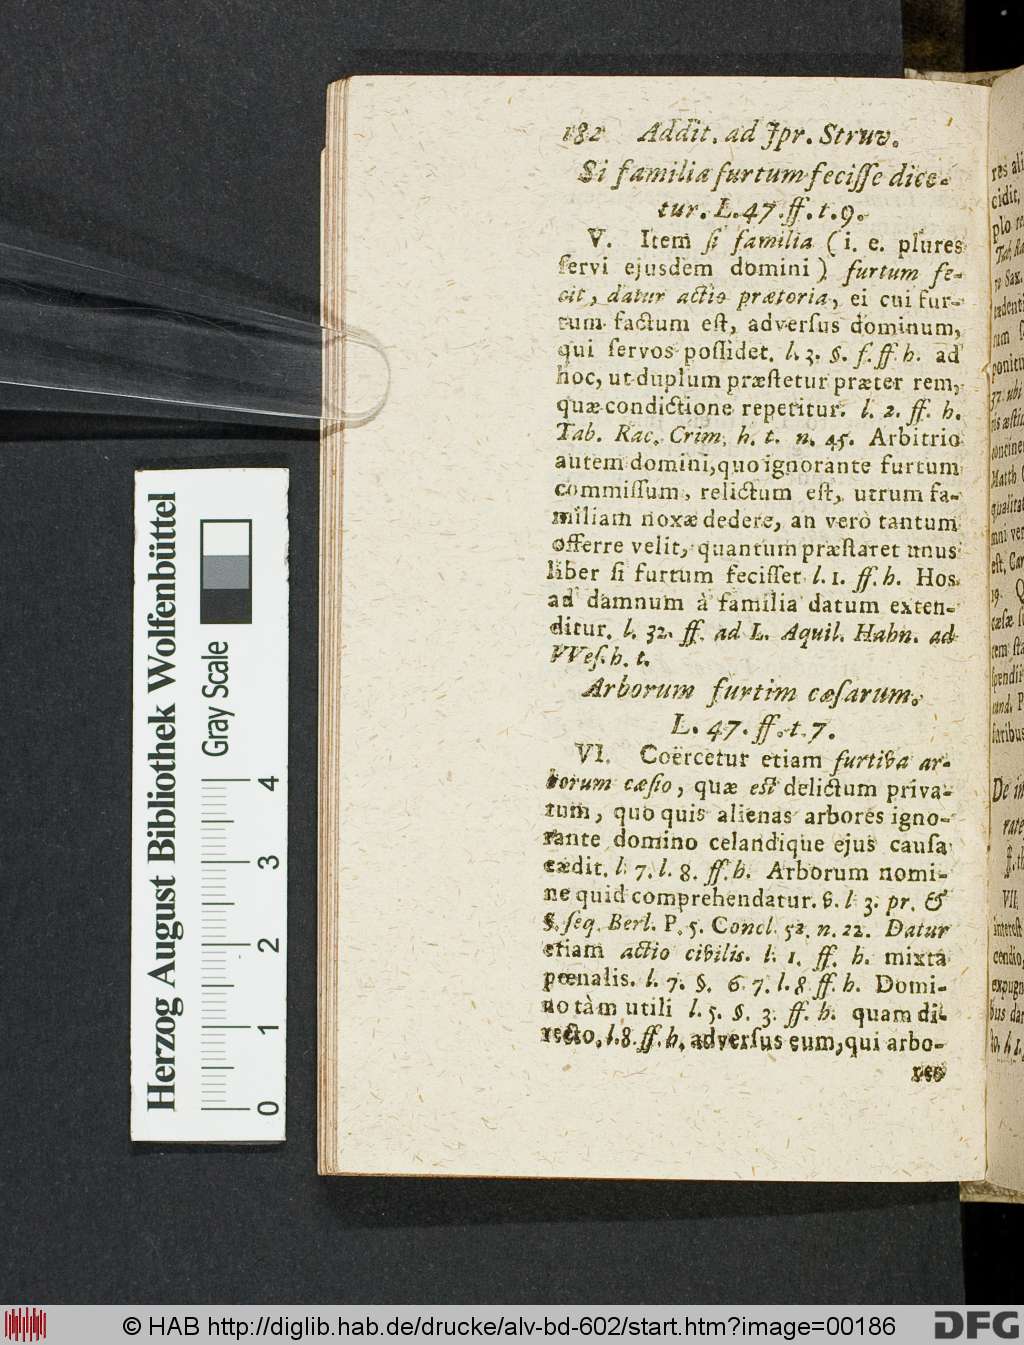 182 Addit. ad Jpr. Struv.
Si familia furtum feciſſe dice-
tur. L. 47. ff. t. 9.
V. Item ſi familia (i. e. plures
ſervi ejusdem domini) furtum fe-
cit, datur actio prætoria, ei cui fur-
tum factum eſt, adverſus dominum,
qui ſervos poſſidet. l. 3. §. f. ff. h. ad
hoc, ut duplum præſtetur præter rem,
quæ condictione repetitur. l. 2. ff. h.
Tab. Rac. Crim. h. t. n. 45. Arbitrio
autem domini, quo ignorante furtum
commiſſum, relictum eſt, utrum fa-
miliam noxæ dedere, an verò tantum
offerre velit, quantum præſtaret unus
liber ſi furtum feciſſet l. 1. ff. h. Hos
ad damnum à familia datum exten-
ditur. l. 32. ff. ad L. Aquil. Hahn. ad
VVeſ. h. t.
Arborum furtim cæſarum.
L. 47. ff. t. 7.
VI. Coërcetur etiam furtiva ar-
borum cæſio, quæ est delictum priva-
tum, quo quis alienas arbores igno-
rante domino celandique ejus cauſa
cædit. l. 7. l. 8. ff. h. Arborum nomi-
ne quid comprehendatur. v. l. 3. pr. &
§. ſeq. Berl. P. 5. Concl. 52. n. 22. Datur
etiam actio civilis. l. 1. ff. h. mixta
pœnalis. l. 7. §. 6. 7. l. 8 ff. h. Domi-
no tàm utili l. 5. §. 3. ff. h. quam di-
recto. l. 8. ff. h. adverſus eum, qui arbo-
res
Herzog August Bibliothek Wolfenbüttel
Gray Scale
0 1 2 3 4
© HAB http://diglib.hab.de/drucke/alv-bd-602/start.htm?image=00186
DFG